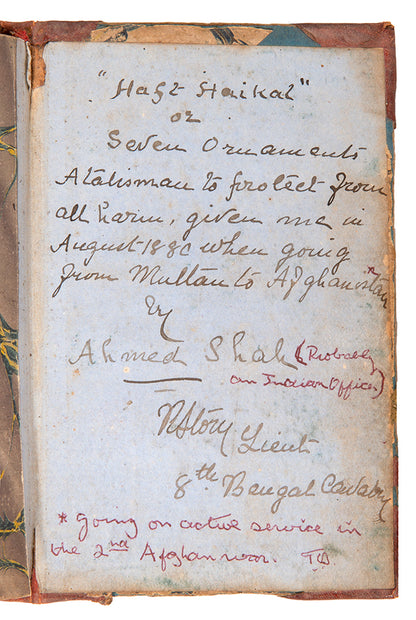 "Haft Haikal"
or
Seven Ornaments
A talisman to protect from
all harm, given me in
August 1880 when going
from Multan to Afghanistan *
by
Ahmed Shah (Probably
an Indian Officer)
Story Lieut
8th Bengal Cavalry
* Going on active service in
the 2nd Afghan war.